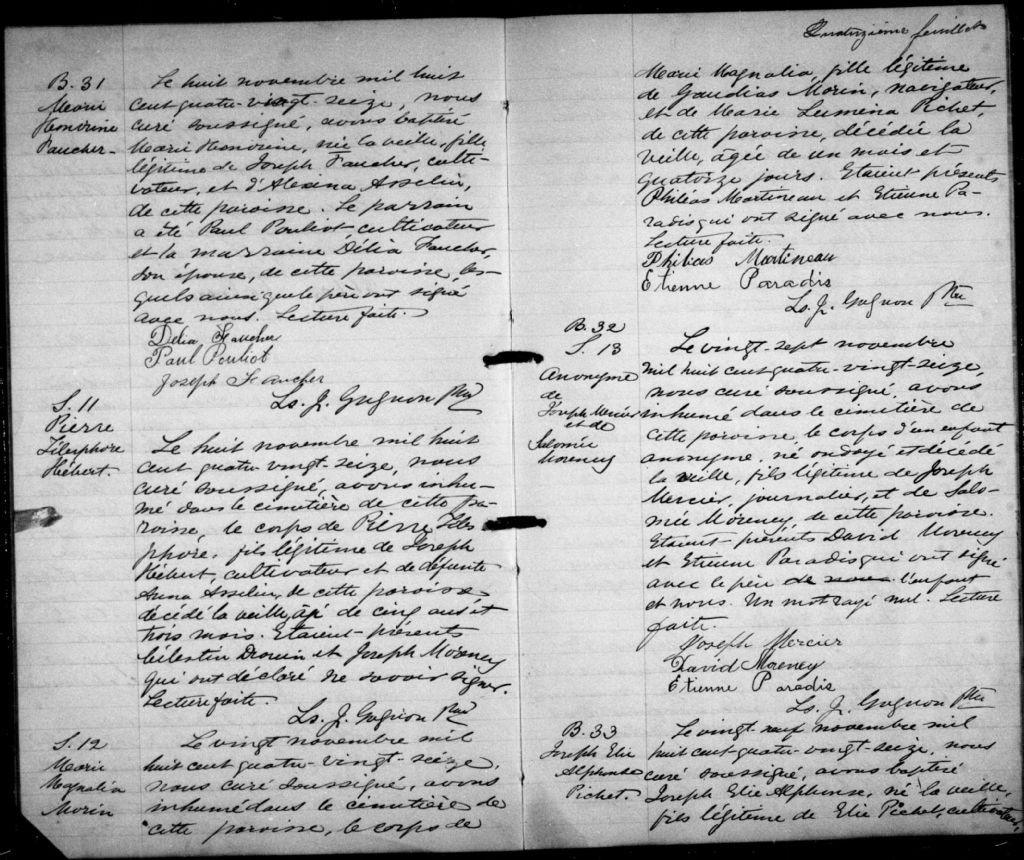 B. 31
Marie
Honorine
Faucher.
Le huit novembre mil huit
cent quatre-vingt-seize, nous
curé soussigné, avons baptisé
Marie Honorine, née la veille, fille
légitime de Joseph Faucher, culti-
vateur, et d'Alexina Asselin,
de cette paroisse. Le parrain
a été Paul Pouliot cultivateur
et la marraine Délia Faucher,
son épouse, de cette paroisse, les-
quels ainsi que le père ont signé
avec nous. Lecture faite.
Délia Faucher
Paul Pouliot
Joseph Faucher
Ls. J. Gagnon Ptre
S. 11
Pierre
Télesphore
Hébert.
Le huit novembre mil huit
cent quatre-vingt-seize, nous
curé soussigné, avons inhu-
mé dans le cimetière de cette pa-
roisse, le corps de Pierre Téles
phore, fils légitime de Joseph
Hébert, cultivateur et de défunte
Anna Asselin, de cette paroisse
décédé la veille, âgé de cinq ans et
trois mois. Etaient présents
Célestin Drouin et Joseph Moreney
qui ont déclaré ne savoir signer.
Lecture faite.
Ls. J. Gagnon Ptre
S. 12
Marie
Magnalia
Morin
Le vingt novembre mil
huit cent quatre-vingt-seize,
nous curé soussigné, avons
inhumé dans le cimetière de
cette paroisse, le corps de
Quatorzième feuillet
Marie Magnalia, fille légitime
de Gaudias Morin, navigateur,
et de Marie Lumena Pichet,
de cette paroisse, décédée la
veille, âgée de un mois et
quatorze jours. Etaient présents
Philias Martineau et Etienne Pa-
radis qui ont signé avec nous.
Lecture faite.
Philias Martineau
Etienne Paradis
Ls. J. Gagnon Ptre
B. 32
S. 13
Anonyme
de
Joseph Mercier
et de
Salomée
Moreney
Le vingt-sept novembre
mil huit cent quatre-vingt-seize,
nous curé soussigné, avons
inhumé dans le cimetière de
cette paroisse, le corps d'un enfant
anonyme, né ondoyé et décédé
la veille, fils légitime de Joseph
Mercier, journalier, et de Salo-
mée Moreney, de cette paroisse.
Etaient présents David Moreney
et Etienne Paradis qui ont signé
avec le père de nous l'enfant
et nous. Un mot rayé nul. Lecture
faite.
Joseph Mercier
David Moreney
Etienne Paradis
Ls. J. Gagnon Ptre
B. 33
Joseph Elie
Alphonse
Pichet.
Le vingt neuf novembre mil
huit cent quatre-vingt-seize, nous
curé soussigné, avons baptisé
Joseph Elie Alphonse, né la veille,
fils légitime de Elie Pichet, cultivateur,